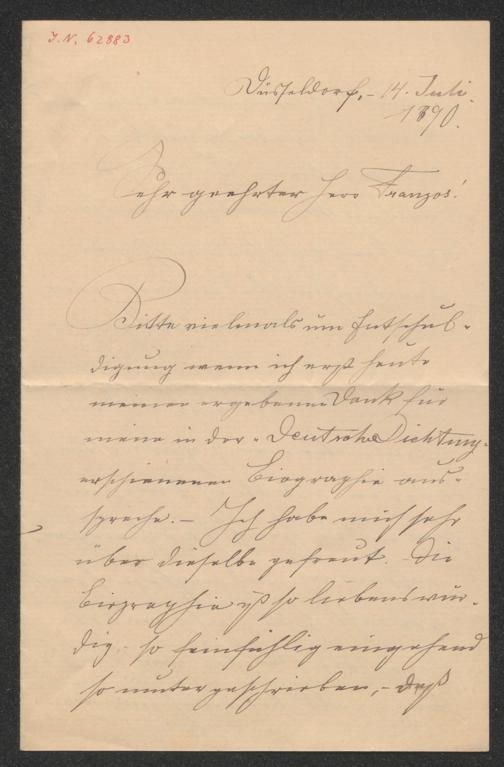 J.N. 62883
Düsseldorf, - 14. Juli
1890.
Sehr geehrter Herr Franzos!
Bitte vielmals um Entschul-
digung wenn ich erst heute
meinen ergebenen Dank für
meine in der "Deutsche Dichtung"
erschienenen Biographie aus-
spreche. - Ich habe mich sehr
über dieselbe gefreut. Die
Biographie ist so liebenswür-
dig - so feinfühlig eingehend
so munter geschrieben, - daß